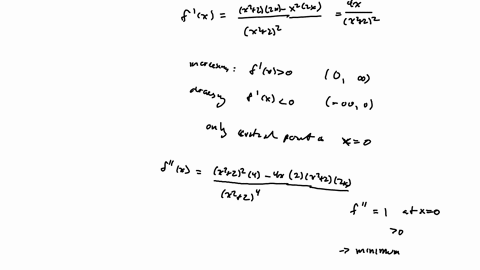 f'(x) = ((x²+2)(2x) - x²(2x)) / (x²+2)² = 4x / (x²+2)²
increasing: f'(x)>0 (0, ∞)
decreasing f'(x)<0 (-∞, 0)
only critical point is x=0
f''(x) = ((x²+2)²(4) - 4x(2)(x²+2)(2x)) / (x²+2)⁴
f'' = 1 at x=0
>0
→ minimum